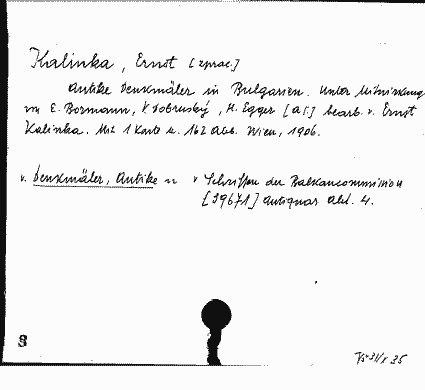 Kalinka, Ernst [zprac.]
Antike Denkmäler in Bulgarien. Unter Mitwirkung
von E. Bormann, V. Dobruský, H. Egger [a j.] bearb. v. Ernst
Kalinka. Mit 1 Karte u. 162 Abb. Wien, 1906.
v. Denkmäler, Antike v Schriften der Balkancommission
[39671] Antiquar. Abt. 4.
8
35